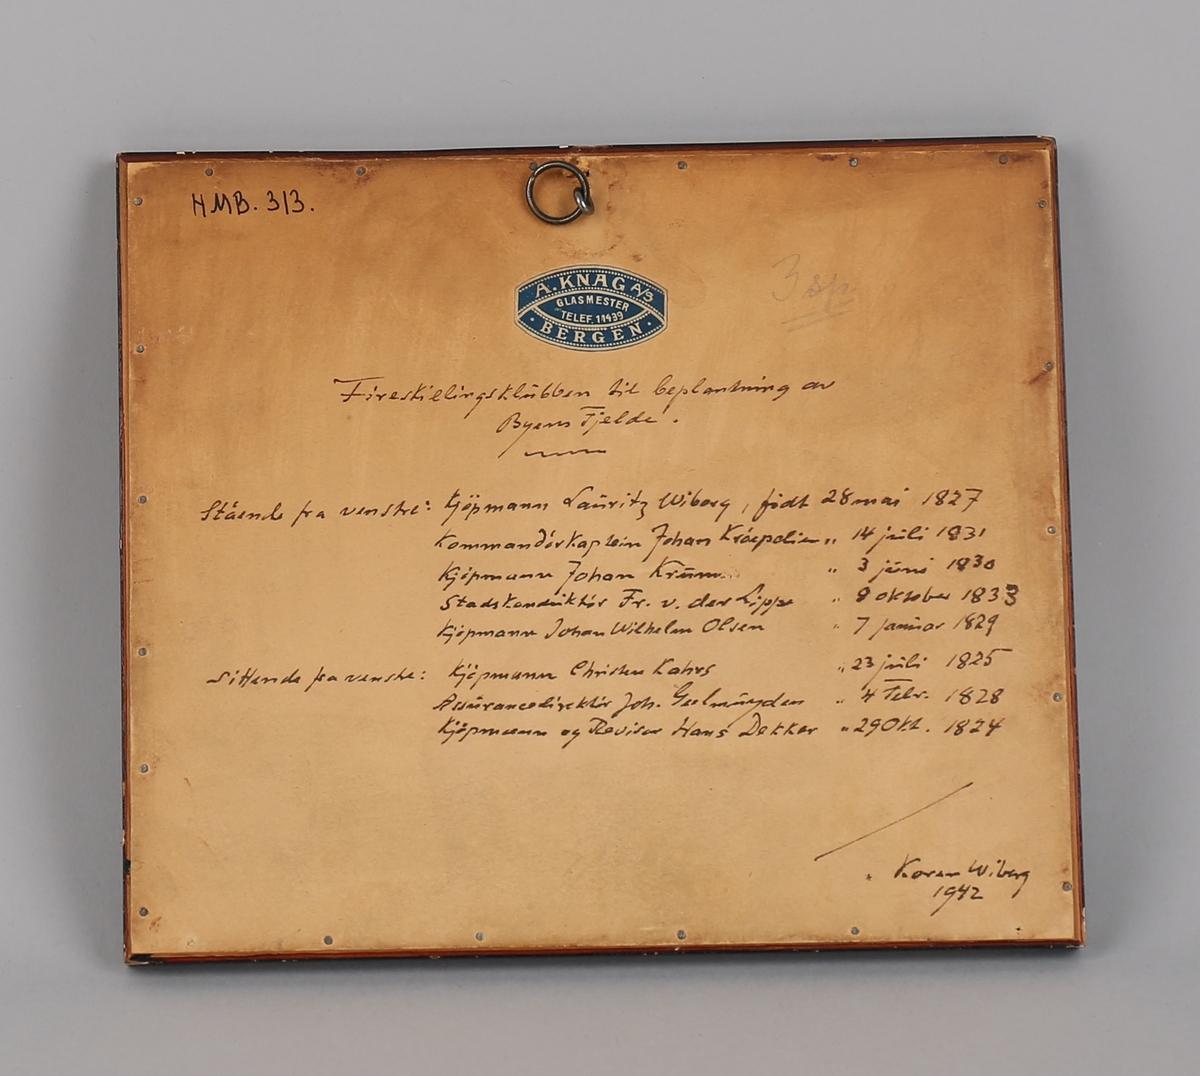 HMB. 313.
A. KNAG A/S
GLASMESTER
TELEF. 11439
BERGEN
3 sp.
Fireskillingsklübben til beplantning av
Byens Fjelde.
Stäende fra venstre: Kjöpmann Laüritz Wiberg, födt 28 mai 1827
Kommandörkaptein Johan " 14 jüli 1831
Kjöpmann Johan " 3 jüni 1830
Stadskondüktör Fr. v. der Lippe " 8 oktober 1833
Kjöpmann Johan Wilhelm Olsen " 7 janüar 1829
Sittende fra venstre: Kjöpmann Christen Kahrs " 23 jüli 1825
Assürancedirektör Joh. Geelmüyden " 4 Febr. 1828
Kjöpmann og Revisor Hans Dekker " 29 Okt. 1824
Koren Wiberg
1942